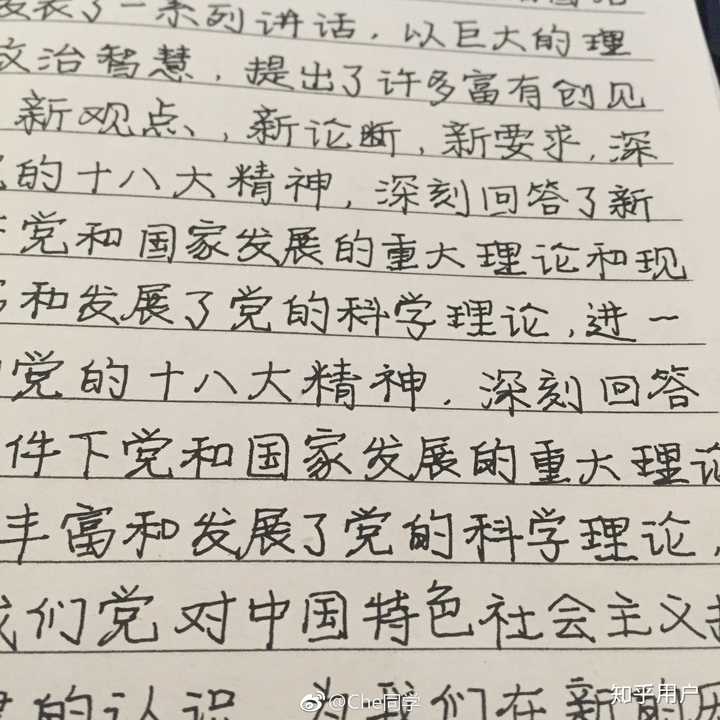 发表了一系列讲话，以巨大的理
政治智慧，提出了许多富有创见
新观点、，新论断，新要求，深
的十八大精神，深刻回答了新
党和国家发展的重大理论和现
和发展了党的科学理论，进一
党的十八大精神，深刻回答
件下党和国家发展的重大理论
丰富和发展了党的科学理论，
我们党对中国特色社会主义
的认识，为我们在新的历
@Che同学
知乎用户